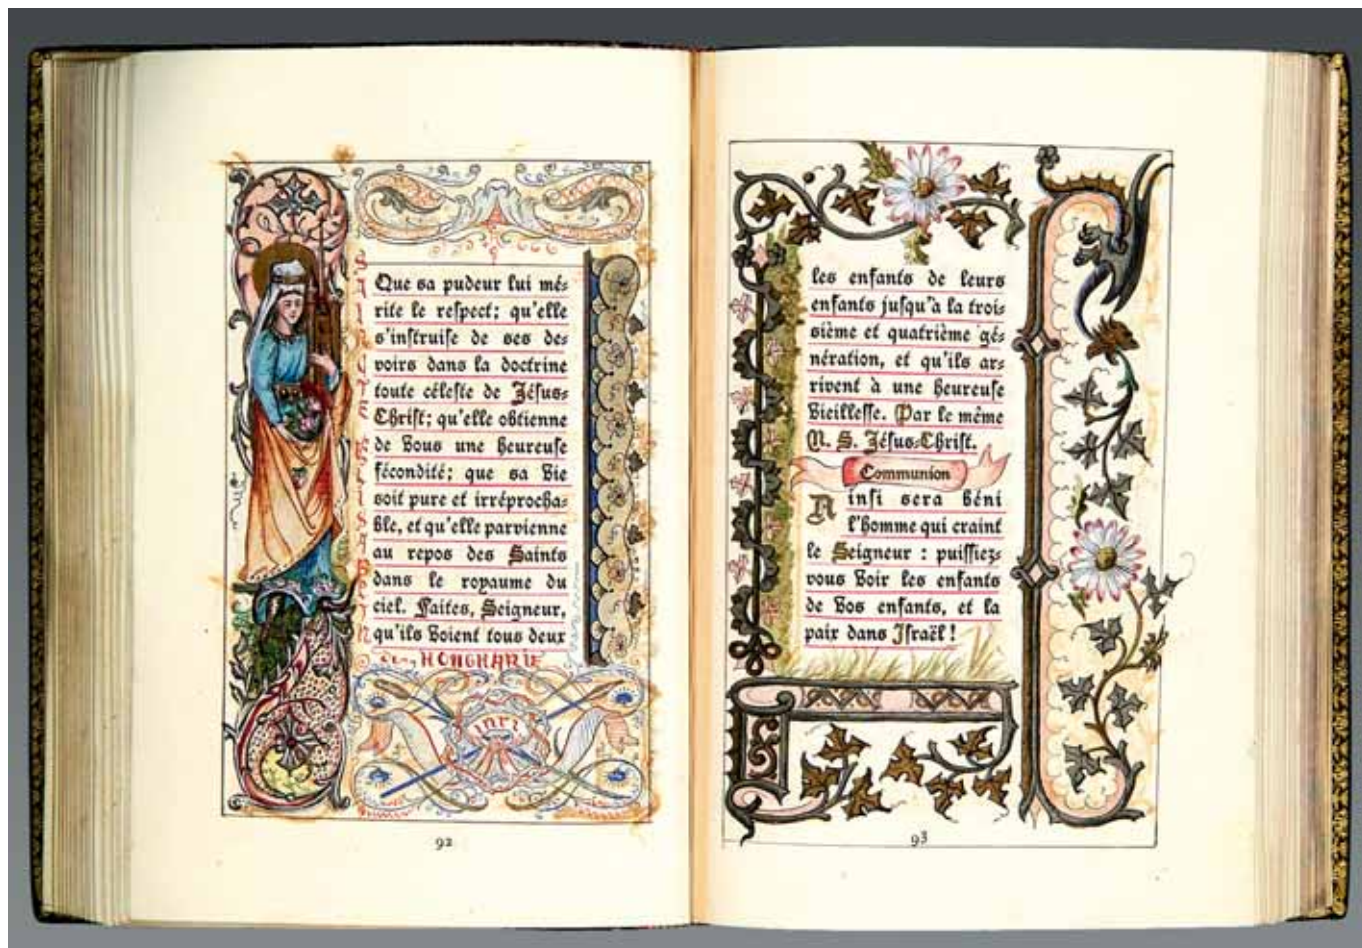 SAINTE ELISABETH
Que sa pudeur lui mé-
rite le respect; qu'elle
s'instruise de ses de-
voirs dans la doctrine
toute céleste de Jésus-
Christ; qu'elle obtienne
de Vous une heureuse
fécondité; que sa Vie
soit pure et irréprocha-
ble, et qu'elle parvienne
au repos des Saints
dans le royaume du
ciel. Faites, Seigneur,
qu'ils Voient tous deux
HONGRARIE
INRI
92
les enfants de leurs
enfants jusqu'à la troi-
sième et quatrième gé-
nération, et qu'ils ar-
rivent à une heureuse
Vieillesse. Par le même
N. S. Jésus-Christ.
Communion
Ainsi sera béni
l'homme qui craint
le Seigneur : puissiez-
vous Voir les enfants
de Vos enfants, et la
paix dans Israël !
93